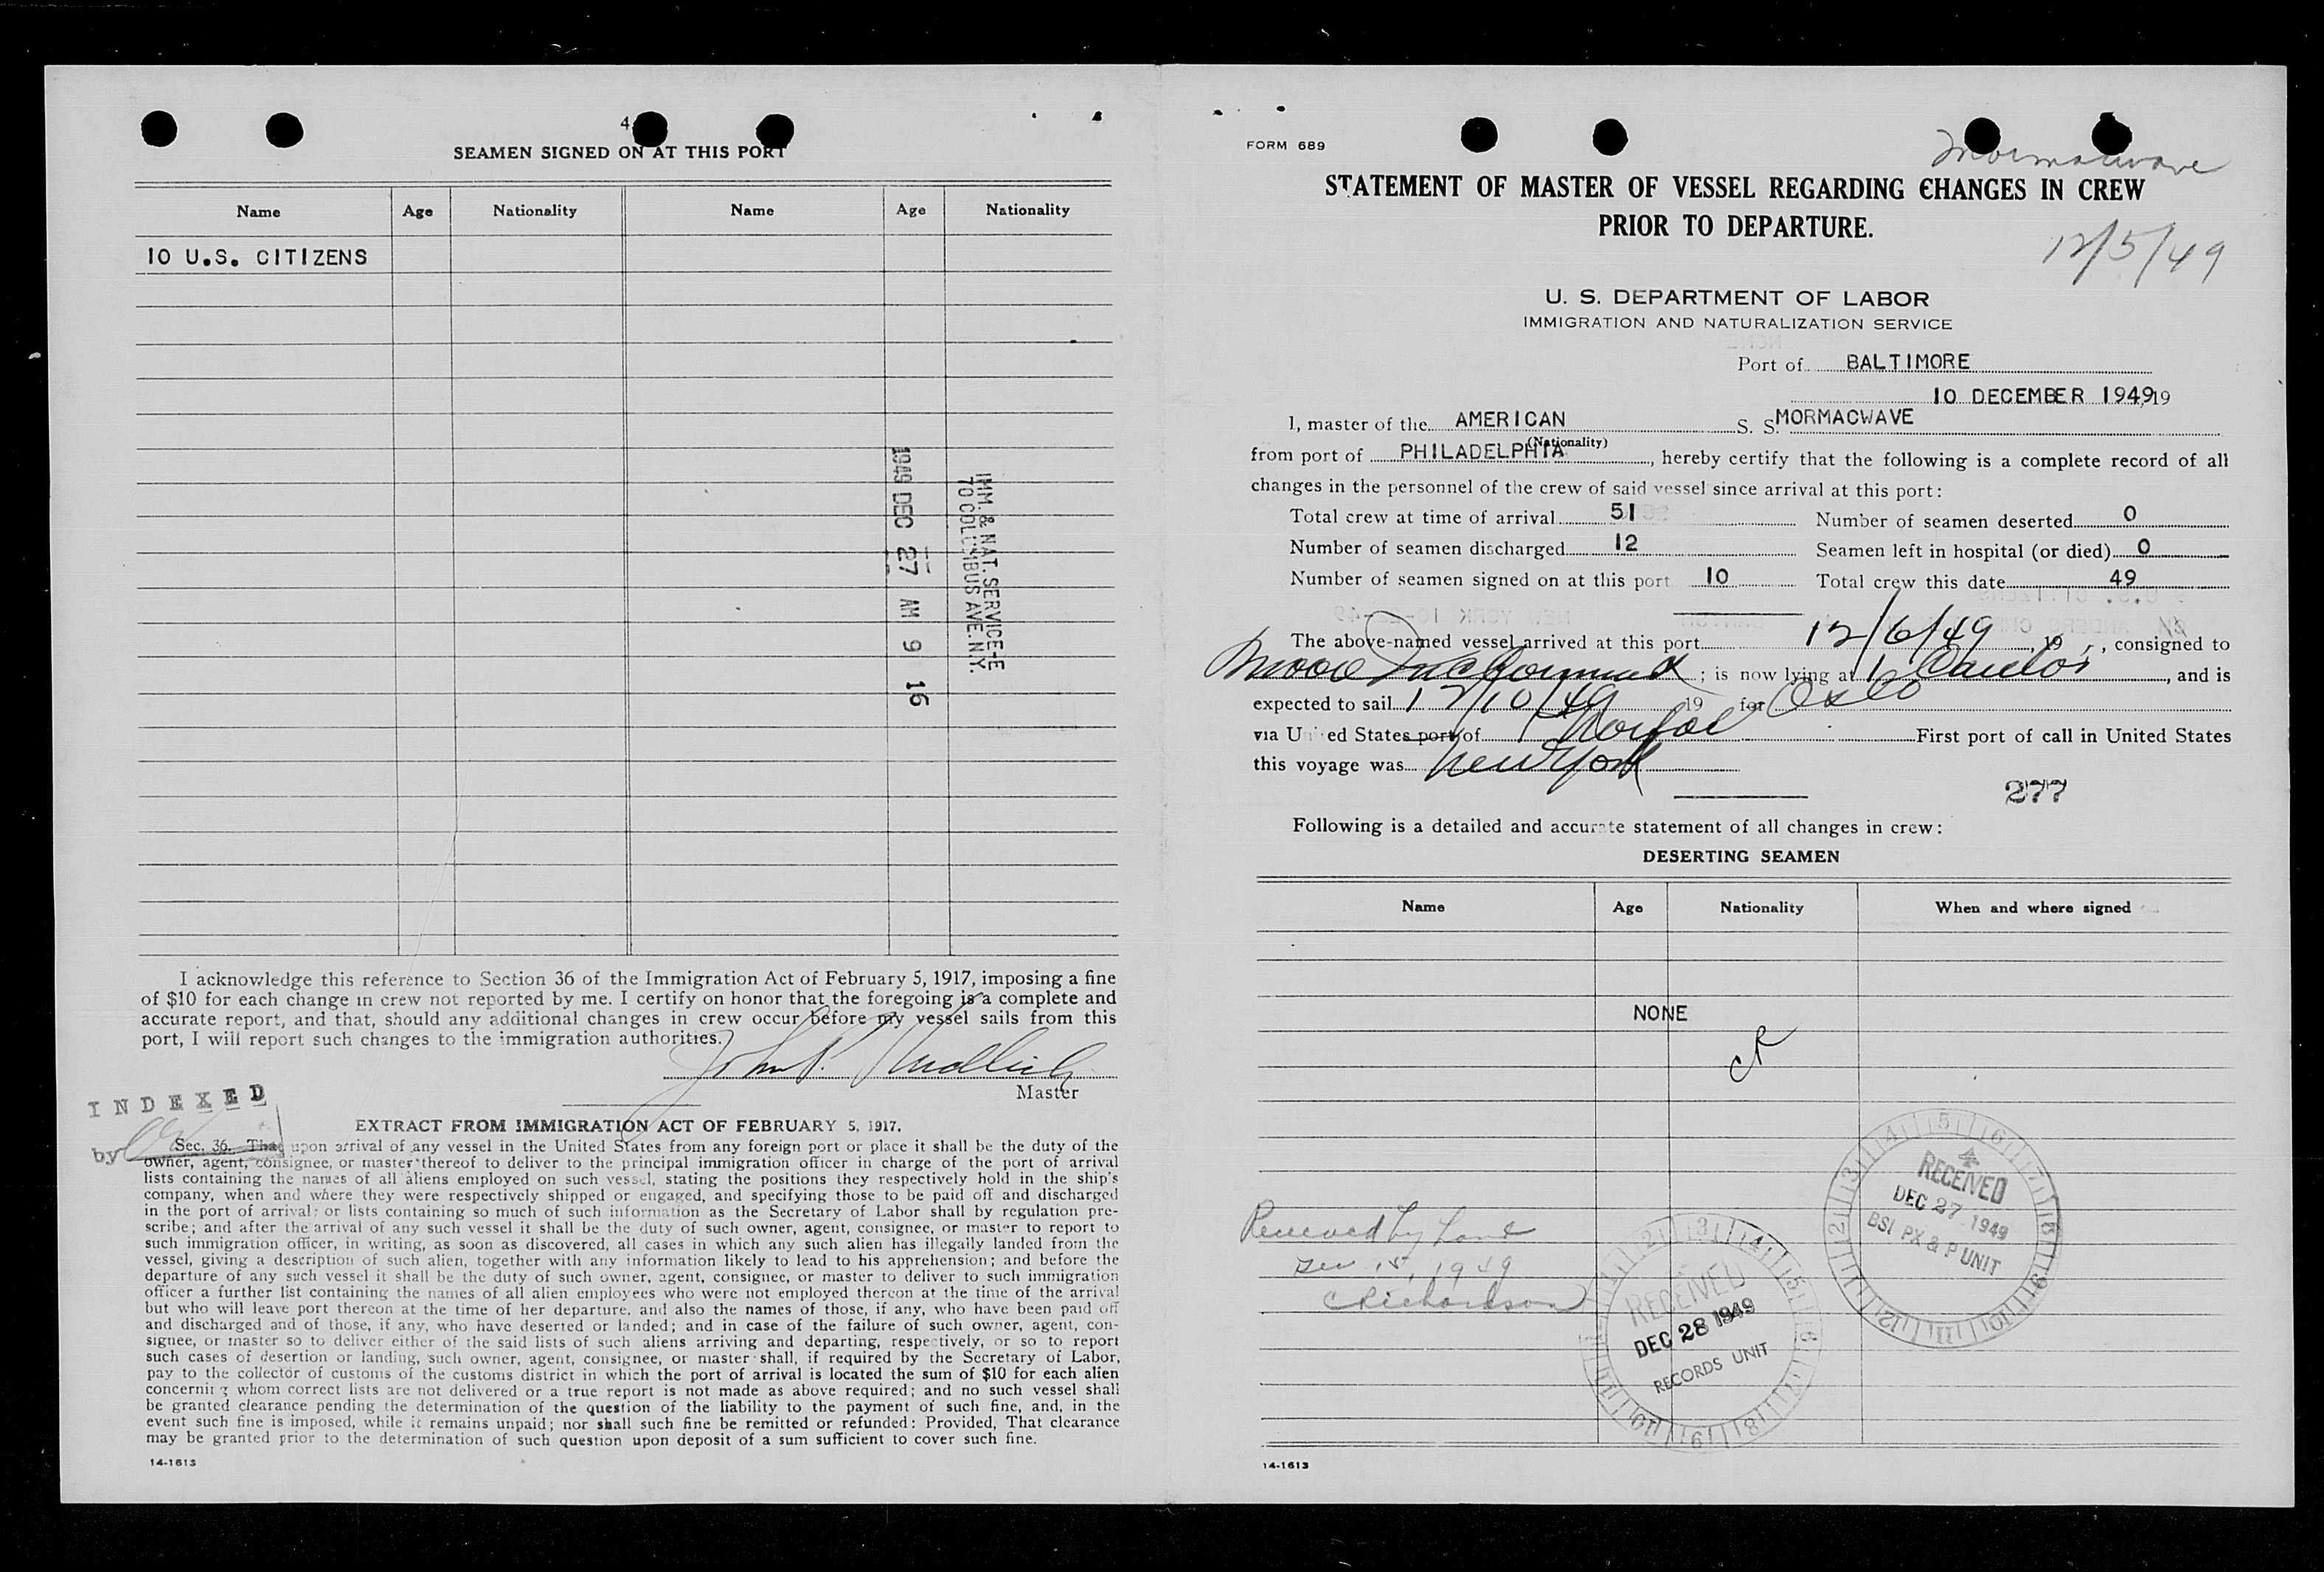 4
SEAMEN SIGNED ON AT THIS PORT
Name Age Nationality Name Age Nationality
10 U.S. CITIZENS
1949 DEC 27 AM 9 16
IMM. & NAT. SERVICE-E
70 COLUMBUS AVE. N.Y.
I acknowledge this reference to Section 36 of the Immigration Act of February 5, 1917, imposing a fine
of $10 for each change in crew not reported by me. I certify on honor that the foregoing is a complete and
accurate report, and that, should any additional changes in crew occur before my vessel sails from this
port, I will report such changes to the immigration authorities.
John P.
Master
INDEXED
by
EXTRACT FROM IMMIGRATION ACT OF FEBRUARY 5, 1917.
Sec. 36. That upon arrival of any vessel in the United States from any foreign port or place it shall be the duty of the
owner, agent, consignee, or master thereof to deliver to the principal immigration officer in charge of the port of arrival
lists containing the names of all aliens employed on such vessel, stating the positions they respectively hold in the ship's
company, when and where they were respectively shipped or engaged, and specifying those to be paid off and discharged
in the port of arrival; or lists containing so much of such information as the Secretary of Labor shall by regulation pre-
scribe; and after the arrival of any such vessel it shall be the duty of such owner, agent, consignee, or master to report to
such immigration officer, in writing, as soon as discovered, all cases in which any such alien has illegally landed from the
vessel, giving a description of such alien, together with any information likely to lead to his apprehension; and before the
departure of any such vessel it shall be the duty of such owner, agent, consignee, or master to deliver to such immigration
officer a further list containing the names of all alien employees who were not employed thereon at the time of the arrival
but who will leave port thereon at the time of her departure, and also the names of those, if any, who have been paid off
and discharged and of those, if any, who have deserted or landed; and in case of the failure of such owner, agent, con-
signee, or master so to deliver either of the said lists of such aliens arriving and departing, respectively, or so to report
such cases of desertion or landing, such owner, agent, consignee, or master shall, if required by the Secretary of Labor,
pay to the collector of customs of the customs district in which the port of arrival is located the sum of $10 for each alien
concerning whom correct lists are not delivered or a true report is not made as above required; and no such vessel shall
be granted clearance pending the determination of the question of the liability to the payment of such fine, and, in the
event such fine is imposed, while it remains unpaid; nor shall such fine be remitted or refunded: Provided, That clearance
may be granted prior to the determination of such question upon deposit of a sum sufficient to cover such fine.
14-1613
FORM 689
Mormacwave
STATEMENT OF MASTER OF VESSEL REGARDING CHANGES IN CREW
PRIOR TO DEPARTURE.
12/5/49
U. S. DEPARTMENT OF LABOR
IMMIGRATION AND NATURALIZATION SERVICE
Port of BALTIMORE
10 DECEMBER 1949, 19
I, master of the AMERICAN S. S. MORMACWAVE
(Nationality)
from port of PHILADELPHIA, hereby certify that the following is a complete record of all
changes in the personnel of the crew of said vessel since arrival at this port:
Total crew at time of arrival 51 Number of seamen deserted 0
Number of seamen discharged 12 Seamen left in hospital (or died) 0
Number of seamen signed on at this port 10 Total crew this date 49
The above-named vessel arrived at this port 12/6/49, 19 , consigned to
Moore McCormack; is now lying at, and is
expected to sail 12/10/49 19 for Oslo
via United States port of First port of call in United States
this voyage was New York
277
Following is a detailed and accurate statement of all changes in crew:
DESERTING SEAMEN
Name Age Nationality When and where signed
NONE
RECEIVED
DEC 27 1949
BSI PX & P UNIT
Received by
Dec 15, 1949
CRichardson
RECEIVED
DEC 28 1949
RECORDS UNIT
14-1613